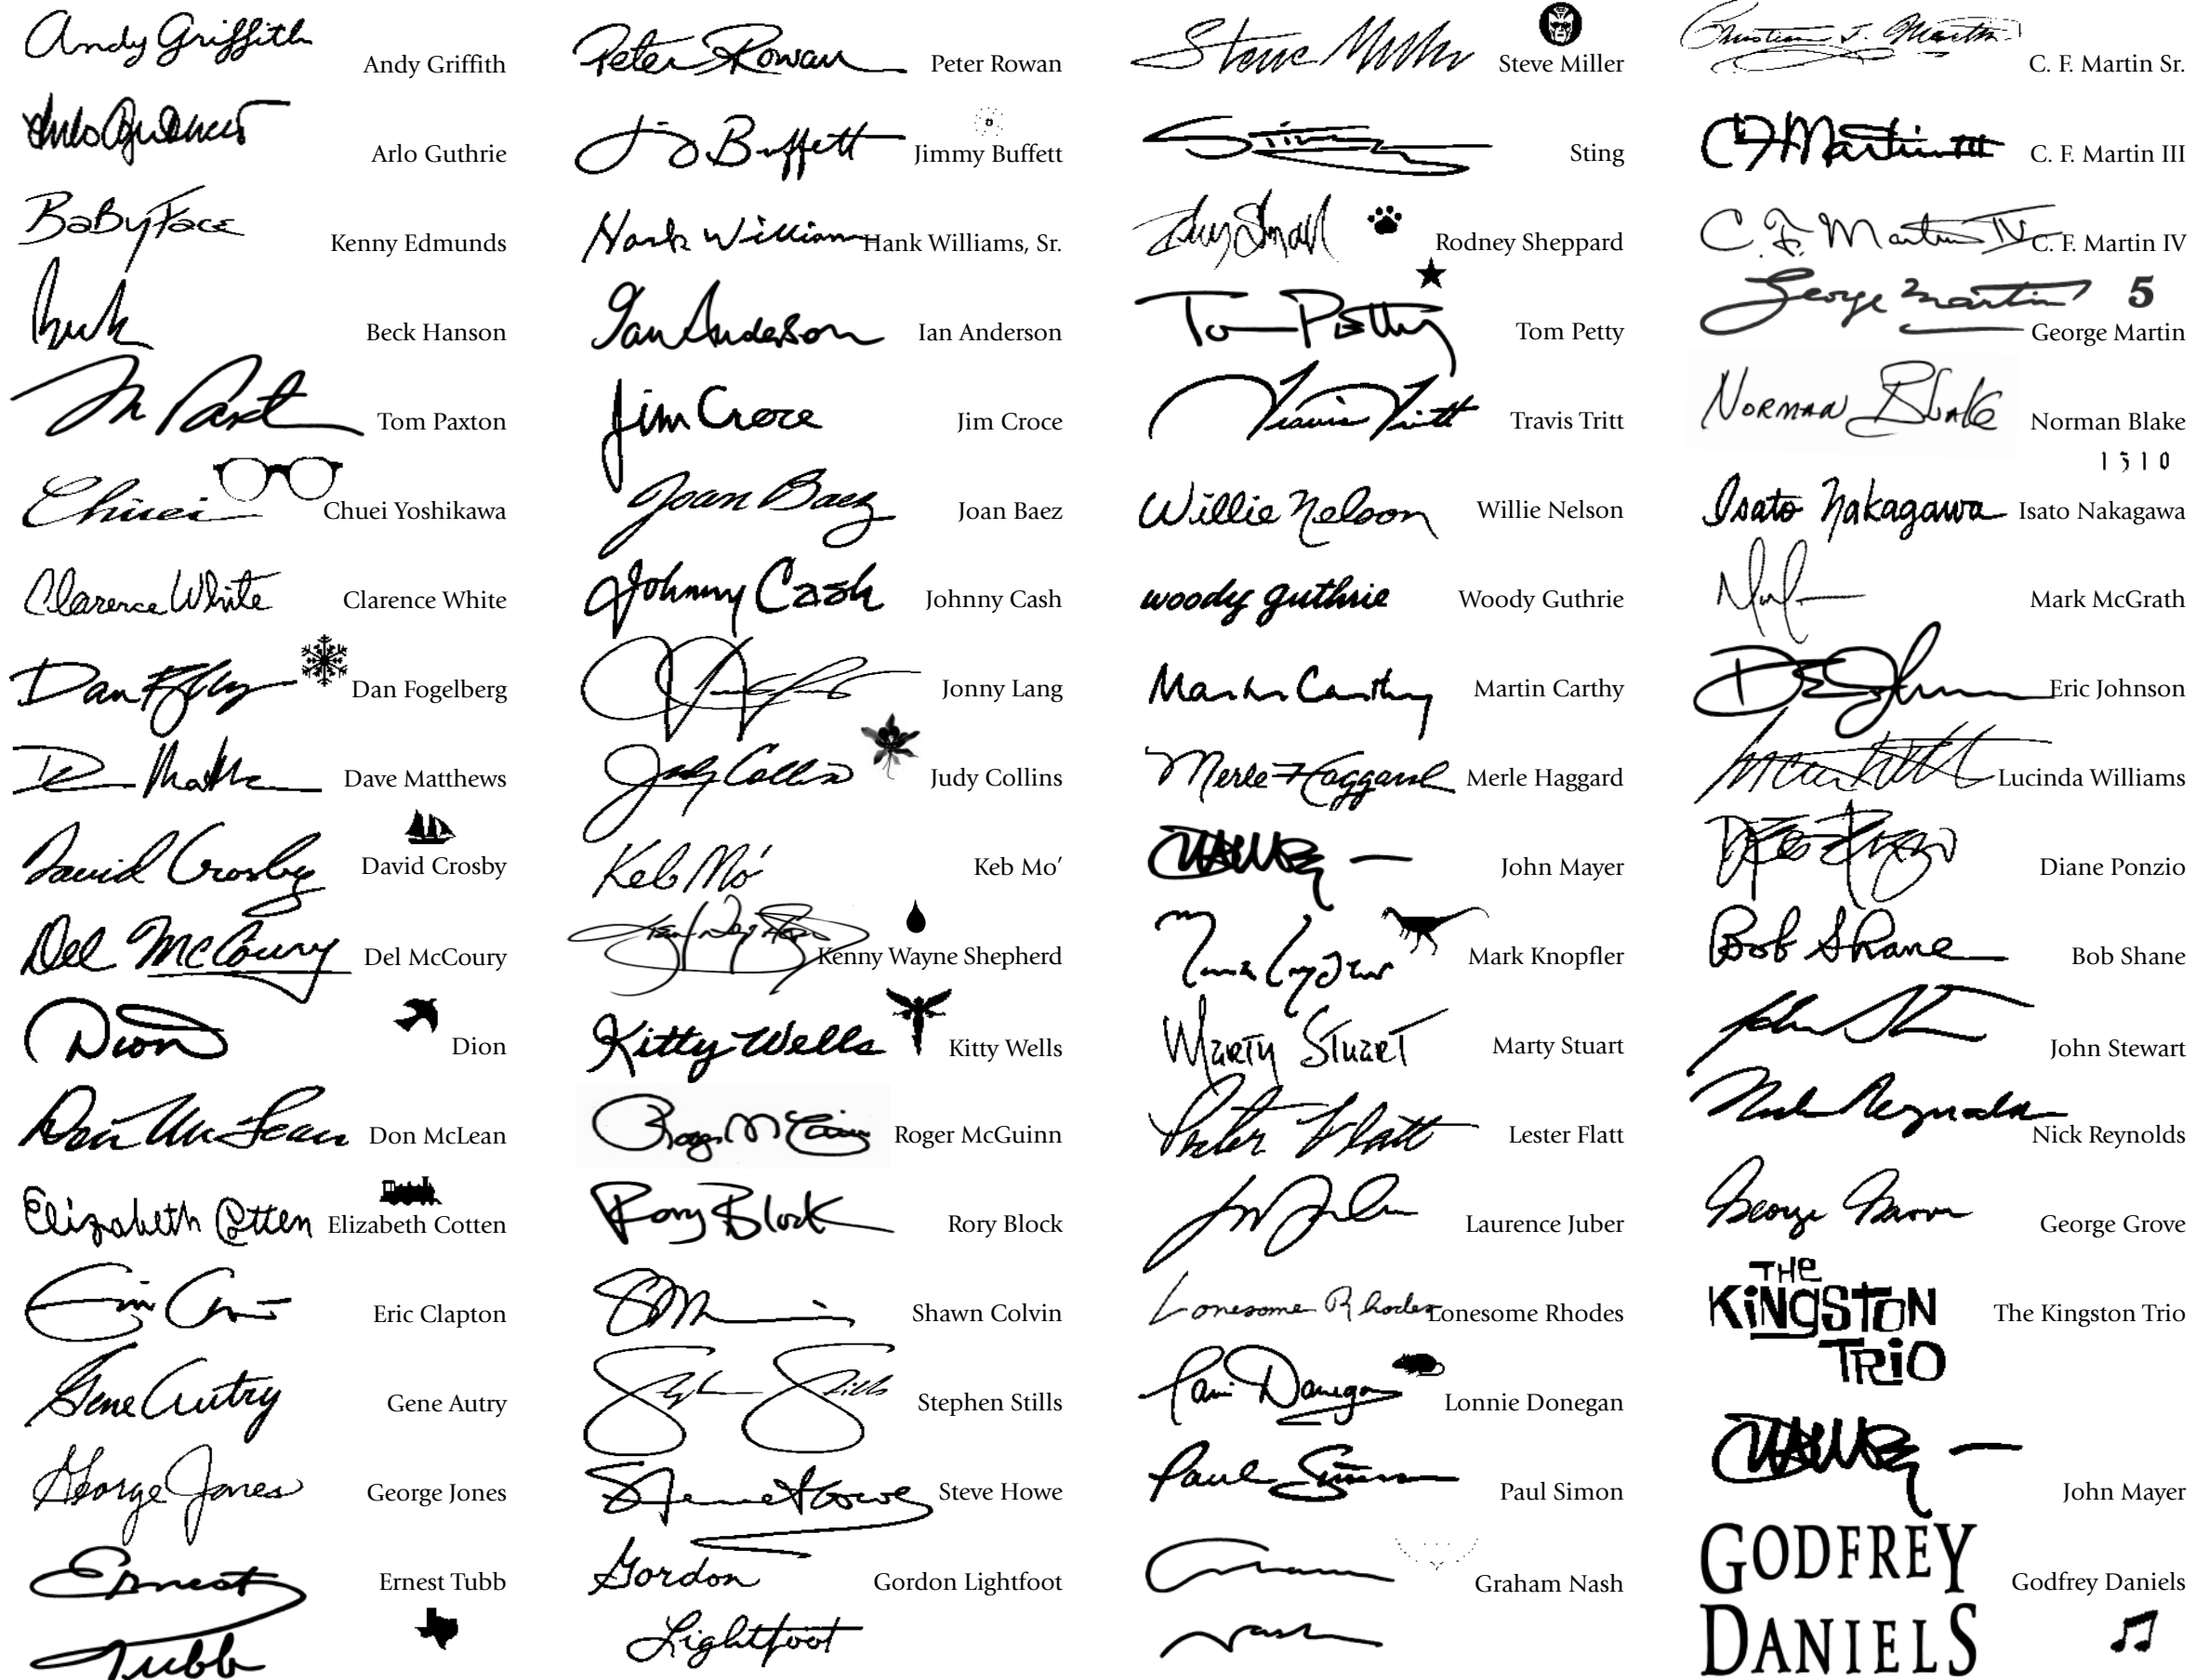 Andy Griffith Andy Griffith
Arlo Guthrie Arlo Guthrie
BabyFace Kenny Edmunds
Beck Beck Hanson
Tom Paxton
Chuei Chuei Yoshikawa
Clarence White Clarence White
Dan Dan Fogelberg
Dave Matthews
David Crosby David Crosby
Del McCoury Del McCoury
Dion Dion
Don McLean Don McLean
Elizabeth Cotten Elizabeth Cotten
Eric Clapton
Gene Autry Gene Autry
George Jones George Jones
Ernest Ernest Tubb
Tubb
Peter Rowan Peter Rowan
Buffett Jimmy Buffett
Hank William Hank Williams, Sr.
Ian Anderson Ian Anderson
Jim Croce Jim Croce
Joan Baez Joan Baez
Johnny Cash Johnny Cash
Jonny Lang
Judy Collins Judy Collins
Keb Mo' Keb Mo’
Kenny Wayne Shepherd
Kitty Wells Kitty Wells
Roger McGuinn
Rory Block Rory Block
Shawn Colvin
Stephen Stills
Steve Howe Steve Howe
Gordon Gordon Lightfoot
Lightfoot
Steve Miller Steve Miller
Sting Sting
Rodney Sheppard
Tom Petty Tom Petty
Travis Tritt Travis Tritt
Willie Nelson Willie Nelson
woody guthrie Woody Guthrie
Martin Carthy Martin Carthy
Merle Haggard Merle Haggard
John Mayer
Mark Knopfler
Marty Stuart Marty Stuart
Lester Flatt Lester Flatt
Laurence Juber
Lonesome Rhodes Lonesome Rhodes
Donegan Lonnie Donegan
Paul Simon Paul Simon
Graham Nash
Nash
C. F. Martin Sr.
CF Martin III C. F. Martin III
C. F. Martin IV C. F. Martin IV
George Martin 5
George Martin
Norman Blake Norman Blake
1310
Isato Nakagawa Isato Nakagawa
Mark McGrath
Eric Johnson
Lucinda Williams
Diane Ponzio
Bob Shane Bob Shane
John Stewart
Nick Reynolds Nick Reynolds
George Grove George Grove
THE
KINGSTON The Kingston Trio
TRIO
John Mayer
GODFREY Godfrey Daniels
DANIELS